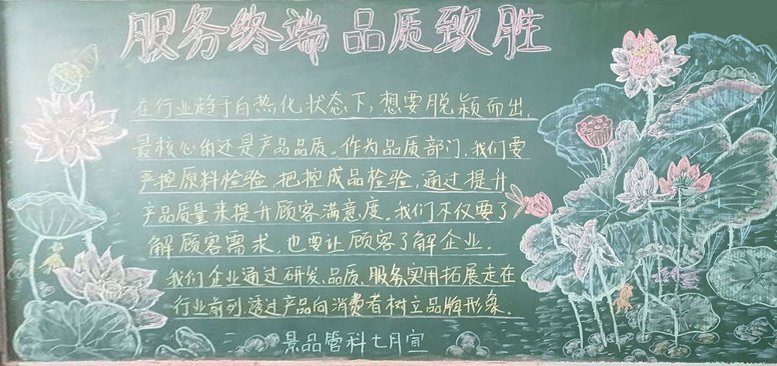 服务终端 品质致胜
在行业趋于白热化状态下,想要脱颖而出,
最核心的还是产品品质。作为品质部门,我们要
严控原料检验,把控成品检验,通过提升
产品质量来提升顾客满意度。我们不仅要了
解顾客需求,也要让顾客了解企业。
我们企业通过研发、品质、服务、实用拓展走在
行业前列,透过产品向消费者树立品牌形象。
景品管科七月宣